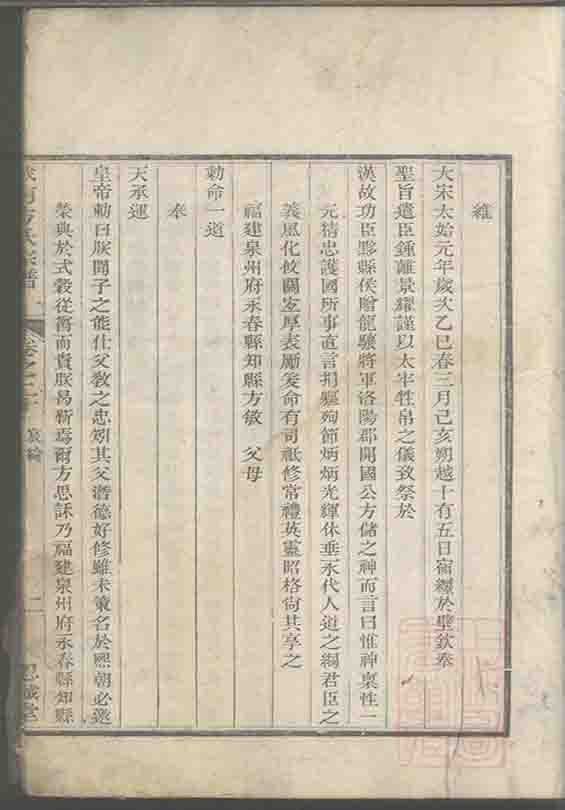 維
大宋太始元年歲次乙巳春三月己亥朔越十有五日宿纏於壁欽奉
聖旨遣臣鍾離景耀謹以太牢牲帛之儀致祭於
漢故功臣黟縣侯贈龍驤將軍洛陽郡開國公方儲之神而言曰惟神稟性一
元精忠護國所事直言捐軀殉節炳炳光輝休垂永代人道之綱君臣之
義風化攸關宜厚表勵爰命有司祗修常禮英靈昭格尙其享之
福建泉州府永春縣知縣方敏 父母
勅命一道
奉
天承運
皇帝勅曰朕聞子之能仕父教之忠矧其父潛德好修雖未策名於熙朝必邀
榮典於式穀從舊而貴朕曷靳焉爾方思訸乃福建泉州府永春縣知縣
方氏宗譜
卷之二
綸
二
思誠堂